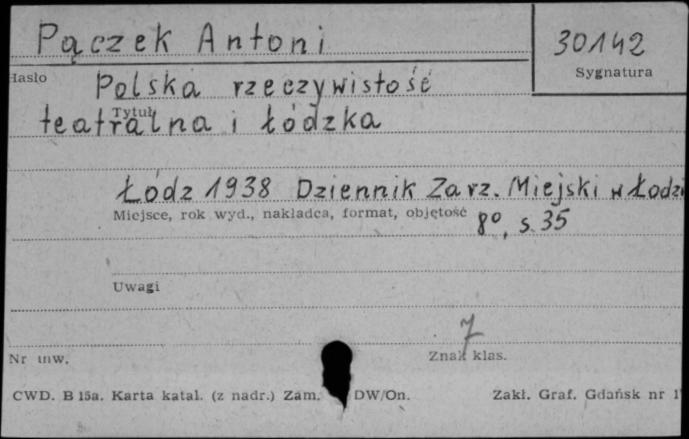 Pączek Antoni
30142
Hasło
Sygnatura
Polska rzeczywistość
Tytuł
teatralna i łódzka
Łódz 1938 Dziennik Zarz. Miejski w Łodzi
Miejsce, rok wyd., nakładca, format, objętość
8°, s. 35
Uwagi
7
Nr inw.
Znak klas.
CWD. B 15a. Karta katal. (z nadr.) Zam. DW/On.
Zakł. Graf. Gdańsk nr 1